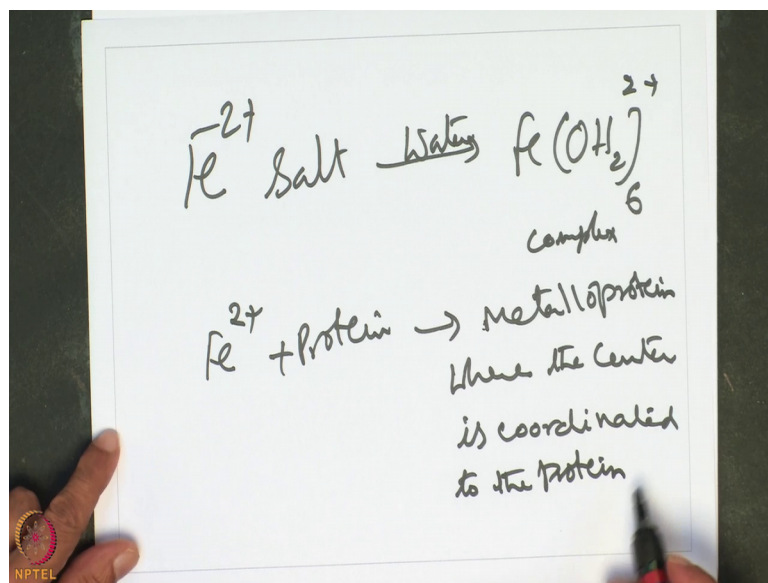 Fe²⁺ Salt Water→ Fe(OH₂)₆²⁺
Complex
Fe²⁺ + Protein → Metalloprotein
Where the Center
is coordinated
to the protein
NPTEL